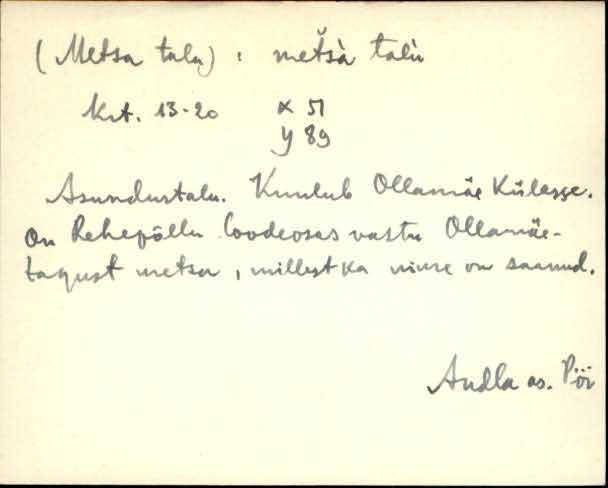 (Metsa talu) : metšà talù
Krt. 13-20 x 51
y 89
Asundustalu. Kuulub Ollamäe Külasse.
On Rehepõllu loodeosas vastu Ollamäe-
tagust metsa, millest ka nime on saanud.
Andla as. Pöi